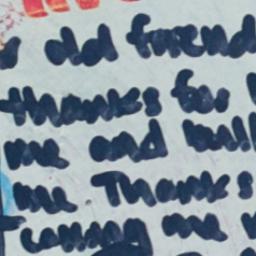 old friend
thanks for
me and
me Thanks
coming me